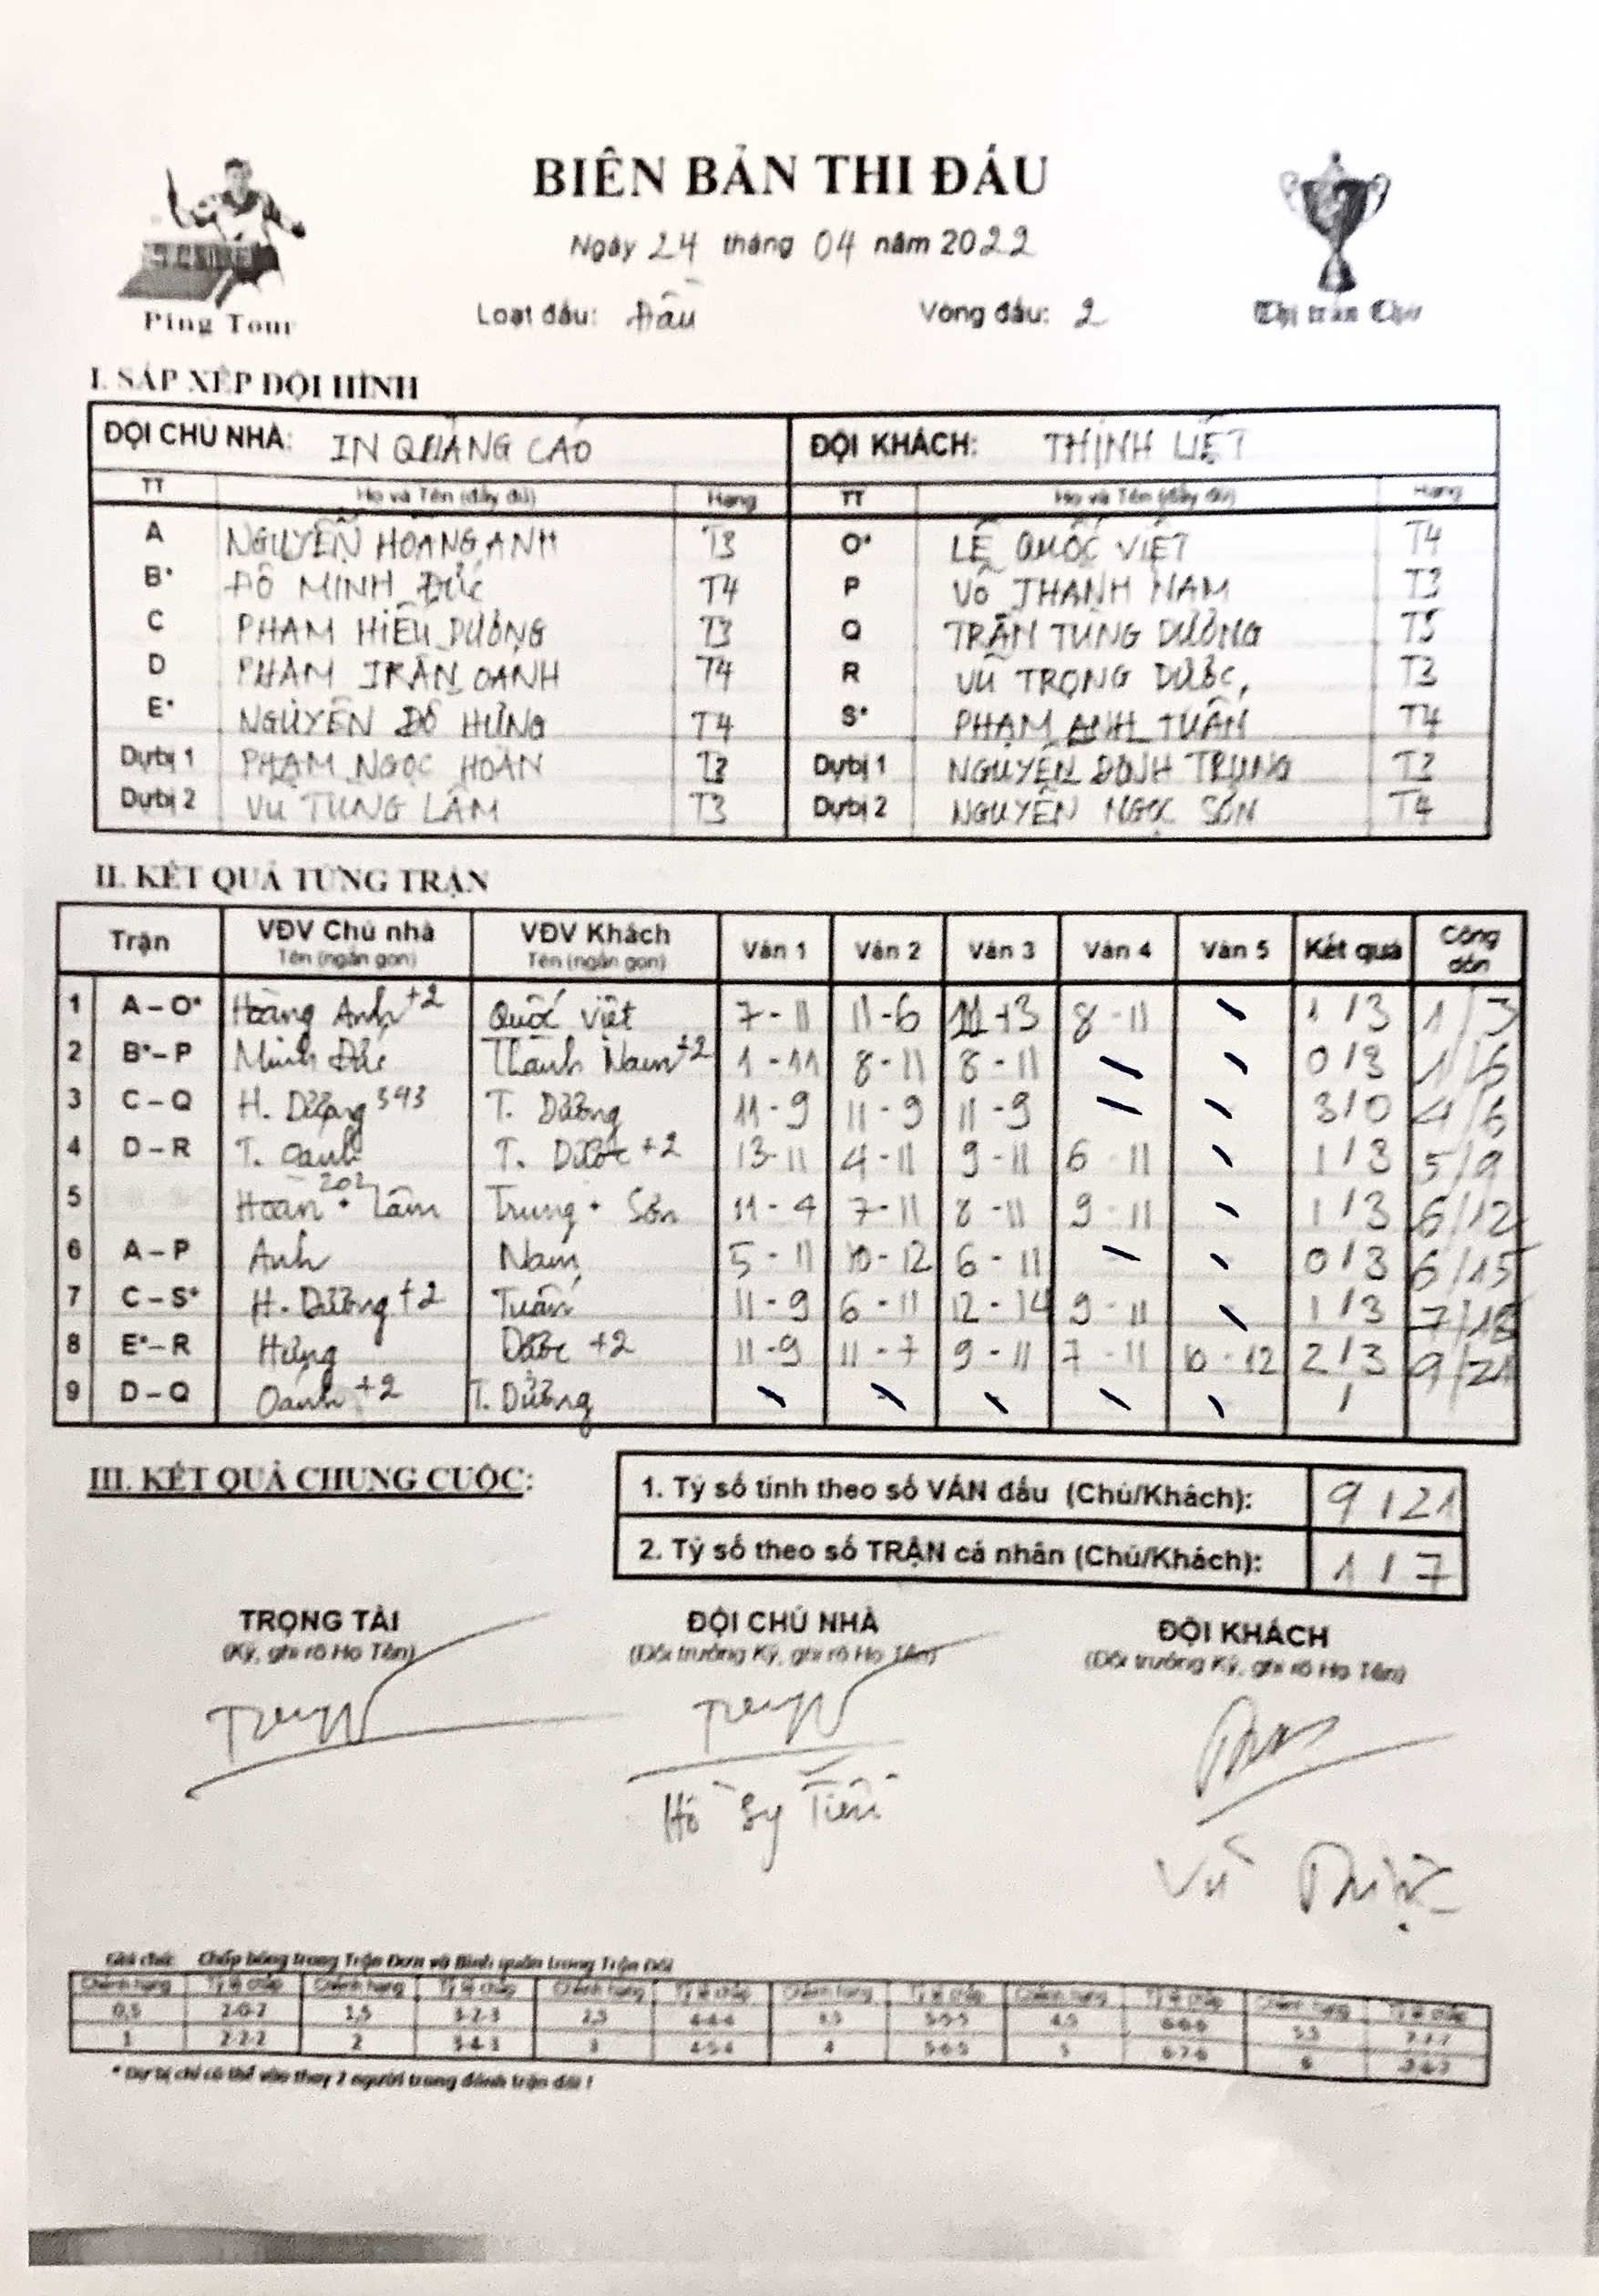 BIÊN BẢN THI ĐẤU
Ngày 24 tháng 04 năm 2022
Loạt đấu: Đầu Vòng đấu: 2
Ping Tour
Thị trấn Chờ
I. SẮP XẾP ĐỘI HÌNH
ĐỘI CHỦ NHÀ: IN QUẢNG CÁO ĐỘI KHÁCH: THỊNH LIỆT
TT Họ và Tên (đầy đủ) Hạng TT Họ và Tên (đầy đủ) Hạng
A NGUYỄN HOÀNG ANH T3 O* LÊ QUỐC VIỆT T4
B* ĐỖ MINH ĐỨC T4 P VÕ THANH NAM T3
C PHAM HIẾU DƯƠNG T3 Q TRẦN TÙNG DƯƠNG T5
D PHẠM TRẦN OANH T4 R VŨ TRỌNG DƯỢC, T3
E* NGUYỄN ĐỖ HƯNG T4 S* PHẠM ANH TUẤN T4
Dự bị 1 PHẠM NGỌC HOÀN T3 Dự bị 1 NGUYỄN ĐÌNH TRUNG T3
Dự bị 2 VŨ TÙNG LÂM T3 Dự bị 2 NGUYỄN NGỌC SƠN T4
II. KẾT QUẢ TỪNG TRẬN
Trận VĐV Chủ nhà VĐV Khách Ván 1 Ván 2 Ván 3 Ván 4 Ván 5 Kết quả Cộng dồn
Tên (ngắn gọn) Tên (ngắn gọn)
1 A – O* Hoàng Anh +2 Quốc Việt 7 - 11 11 - 6 11 - 13 8 - 11 1 / 3 1 / 3
2 B* – P Minh Đức Thành Nam +2 1 - 11 8 - 11 8 - 11 0 / 3 1 / 6
3 C – Q H. Dương 343 T. Dương 11 - 9 11 - 9 11 - 9 3 / 0 4 / 6
4 D – R T. Oanh T. Dược +2 13 - 11 4 - 11 9 - 11 6 - 11 1 / 3 5 / 9
5 Hoàn + Lâm 202 Trung + Sơn 11 - 4 7 - 11 8 - 11 9 - 11 1 / 3 6 / 12
6 A – P Anh Nam 5 - 11 10 - 12 6 - 11 0 / 3 6 / 15
7 C – S* H. Dương +2 Tuấn 11 - 9 6 - 11 12 - 14 9 - 11 1 / 3 7 / 18
8 E* – R Hưng Dược +2 11 - 9 11 - 7 9 - 11 7 - 11 10 - 12 2 / 3 9 / 21
9 D – Q Oanh +2 T. Dương /
III. KẾT QUẢ CHUNG CUỘC:
1. Tỷ số tính theo số VÁN đấu (Chủ/Khách): 9 / 21
2. Tỷ số theo số TRẬN cá nhân (Chủ/Khách): 1 / 7
TRỌNG TÀI ĐỘI CHỦ NHÀ ĐỘI KHÁCH
(Ký, ghi rõ Họ Tên) (Đội trưởng Ký, ghi rõ Họ Tên) (Đội trưởng Ký, ghi rõ Họ Tên)
Hồ Sỹ Tiến
Vũ Dược
Ghi chú: Chấp bóng trong Trận Đơn và Bình quân trong Trận Đôi
Chênh hạng Tỷ lệ chấp Chênh hạng Tỷ lệ chấp Chênh hạng Tỷ lệ chấp Chênh hạng Tỷ lệ chấp Chênh hạng Tỷ lệ chấp Chênh hạng Tỷ lệ chấp
0,5 2-0-2 1,5 3-2-3 2,5 4-4-4 3,5 5-5-5 4,5 6-6-6 5,5 7-7-7
1 2-2-2 2 3-4-3 3 4-5-4 4 5-6-5 5 6-7-6 6
* Dự bị chỉ có thể vào thay 2 người trong đánh trận đôi !